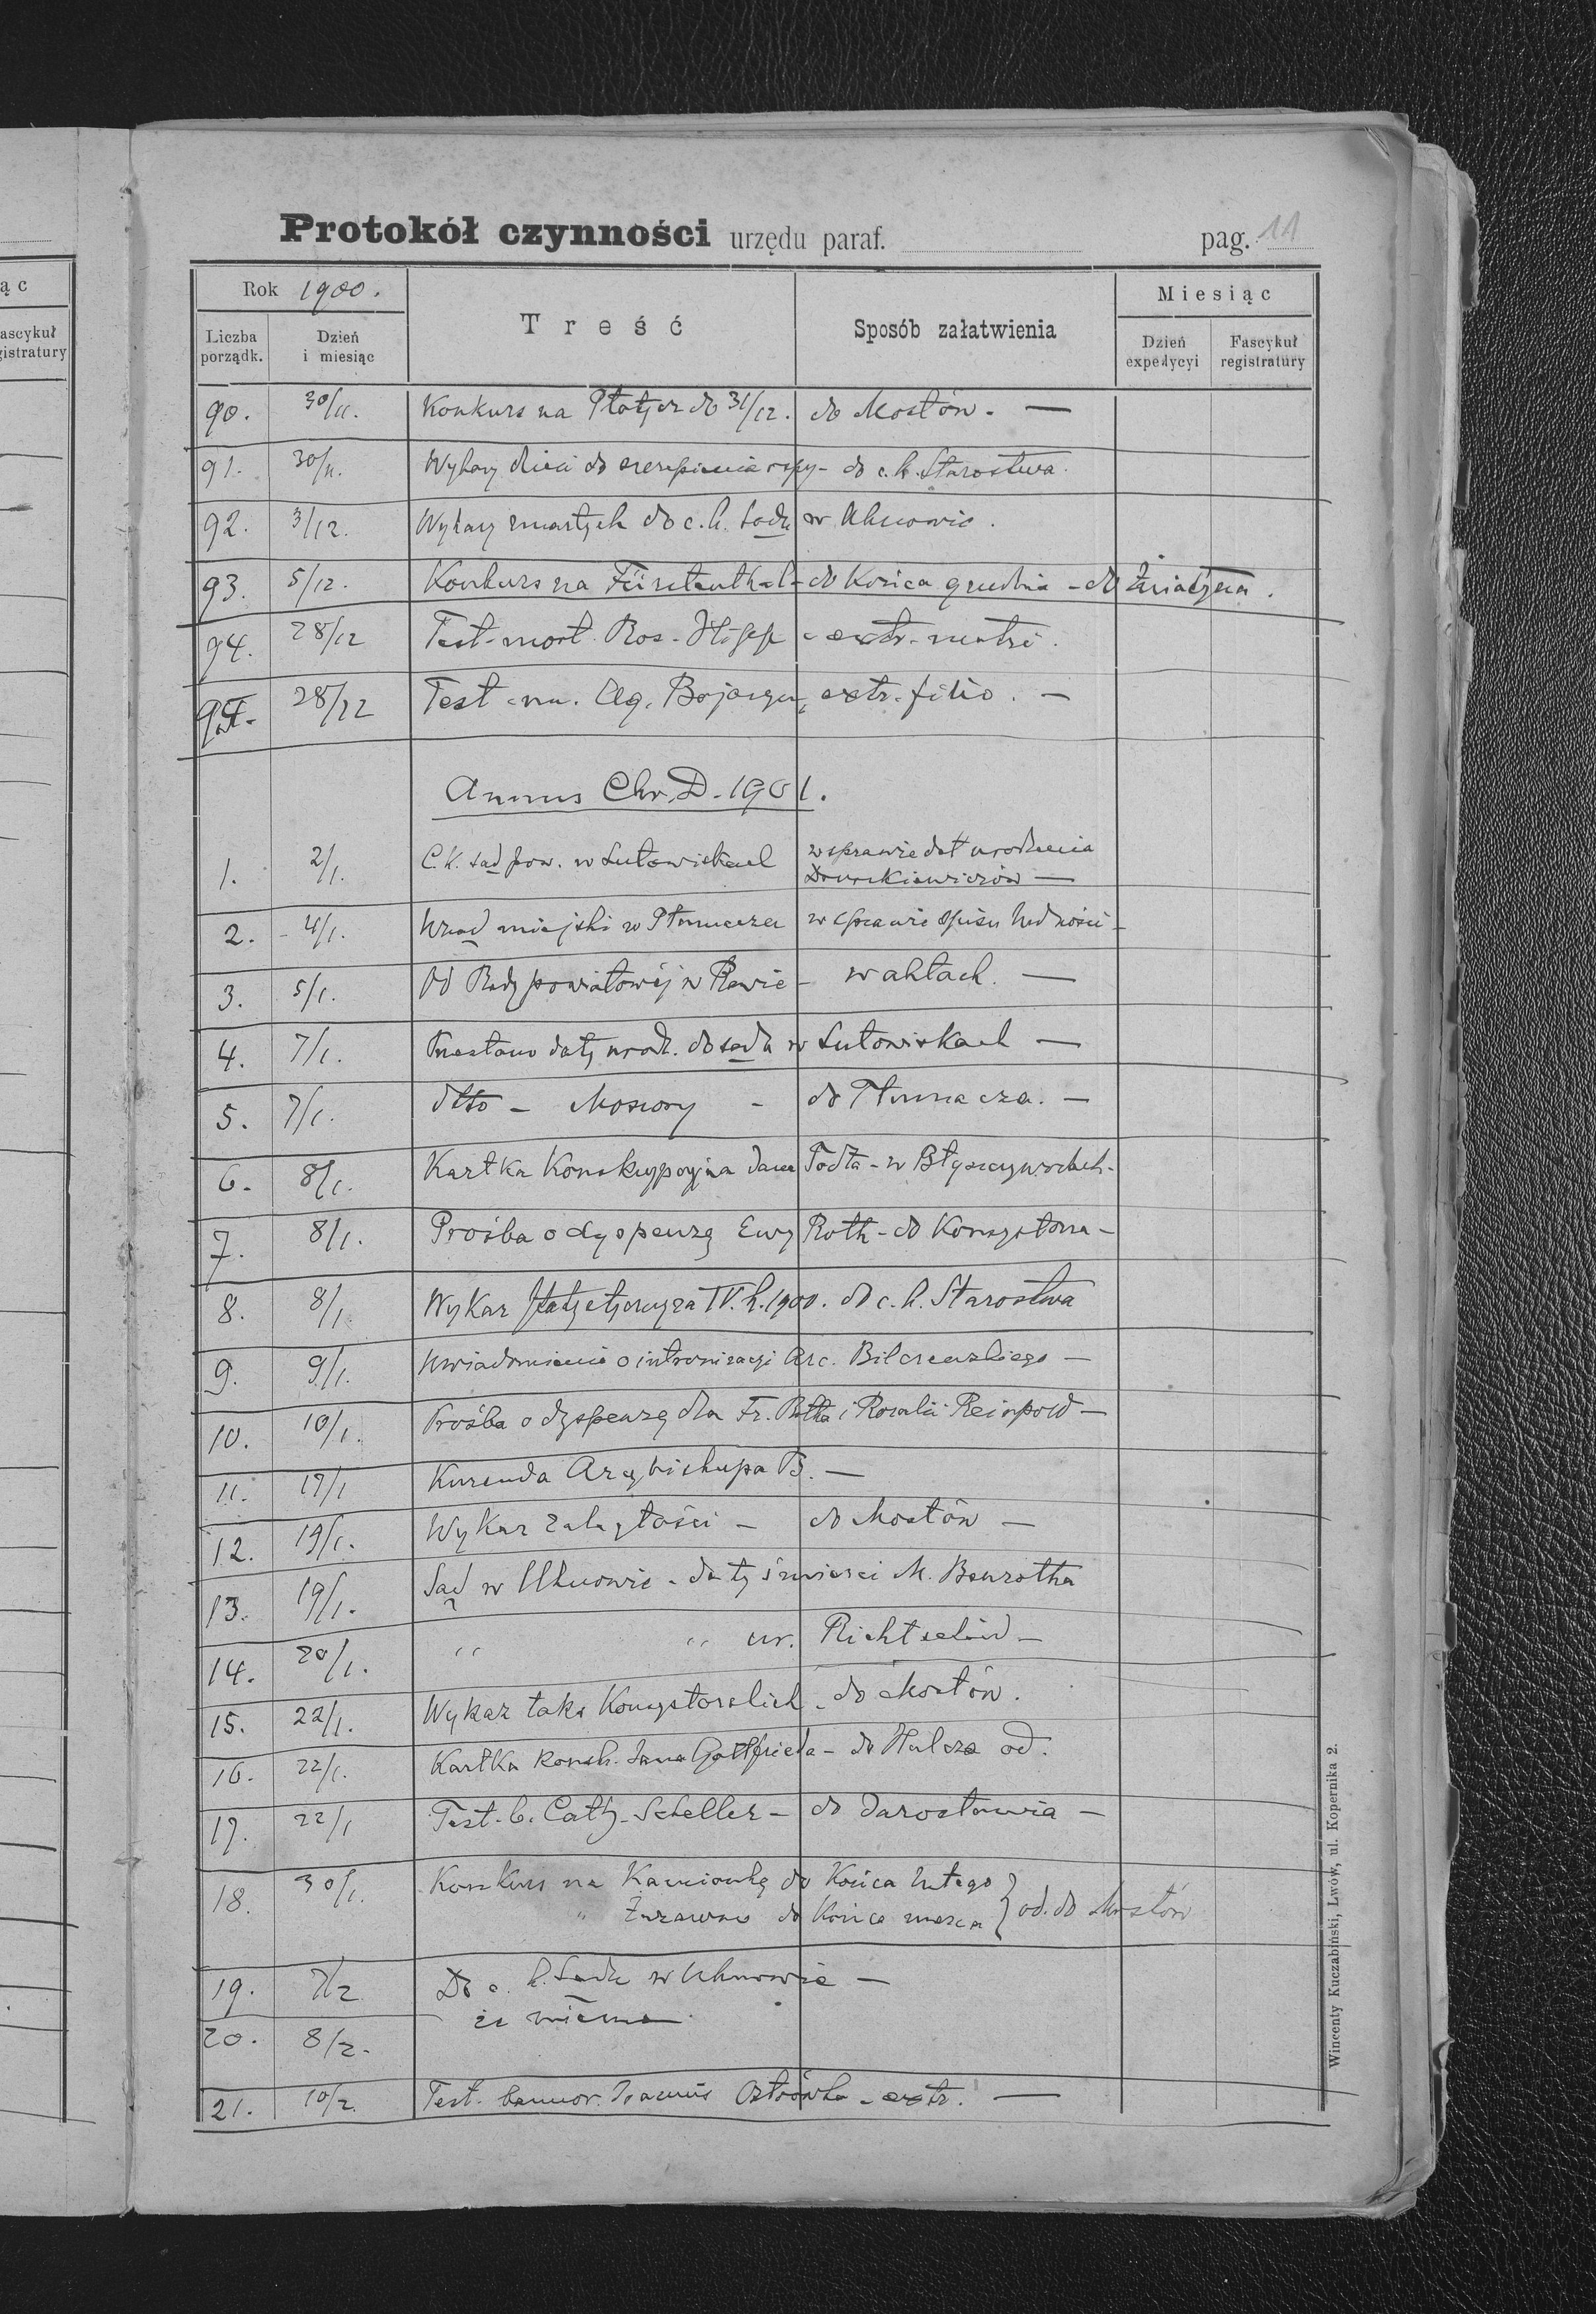 ąc
ascykuł
gistratury
Protokół czynności urzędu paraf. pag. 11
Rok 1900.
Liczba porządk.
Dzień i miesiąc
Treść
Sposób załatwienia
Miesiąc
Dzień expedycyi
Fascykuł registratury
90. 30/11. Konkurs na do 31/12. do Mostów. —
91. 30/11. Wykazy dzieci do szczepienia ospy - do c.k. Starostwa.
92. 3/12. Wykazy zmarłych do c.k. Sądu w Uhnowie.
93. 5/12. Konkurs na Fürstenthal - do końca grudnia - do
94. 28/12 Test. mort. Ros. - extr. matri.
95. 28/12 Test. Ag. extr. filio. —
Annus Chr. D. 1901.
1. 2/1. C.K. sąd pow. w Lutowiskach w sprawie dat urodzenia
—
2. 4/1. Urząd miejski w Tłumaczu w sprawie spisu ludności -
3. 5/1. Od Rady powiatowéj w Rawie - w aktach. —
4. 7/1. Przesłano daty urodz. do sądu w Lutowiskach —
5. 7/1. dtto - Mosiory - do Tłumacza. —
6. 8/1. Kartka Konskrypcyjna Jana - w
7. 8/1. Prośba o dyspenzę Ewy Roth - do Konsystorza -
8. 8/1. Wykaz statystyczny za IV. k. 1900. do c.k. Starostwa
9. 9/1. Uwiadomienie o intronizacyi Arc. Bilczewskiego —
10. 10/1. Prośba o dyspenzę dla Fr. Rotha i Rozalii Reinpold —
11. 17/1 Kurenda Arcybiskupa B. —
12. 19/1. Wykaz zaległości - do Mostów —
13. 19/1. Sąd w Uhnowie - daty śmierci M. Bawrotha
14. 20/1. " " ur. —
15. 22/1. Wykaz taks Konsystorskich - do Mostów.
16. 22/1. Kartka konsk. Jana Gottfrieda - do Hulcza od.
17. 22/1 Test. b. Cath. Scheller - do Jarosławia —
18. 30/1. Konkurs na Kamionkę do końca lutego
" Żurawno do końca marca } od. do Mostów
19. 7/2 Do c.k. Sądu w Uhnowie —
że niema.
20. 8/2.
21. 10/2. Test. bannor. Joannis Ostrówka - extr. —
Wincenty Kuczabiński, Lwów, ul. Kopernika 2.